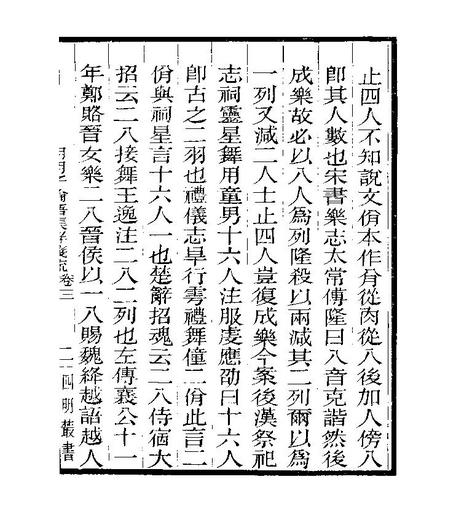 止四人不知說文佾本作㕯從肉從八後加人傍八
卽其人數也宋書樂志太常傅隆曰八音克諧然後
成樂故必以八人爲列隆殺以兩減其二列爾以爲
一列又減二人士止四人豈復成樂今案後漢祭祀
志祠靈星舞用童男十六人注服虔應劭曰十六人
卽古之二羽也禮儀志旱行雩禮舞僮二佾此言二
佾與祠星言十六人一也楚辭招魂云二八侍宿大
招云二八接舞王逸注二八二列也左傳襄公十一
年鄭賂晉女樂二八晉侯以一八賜魏絳越語越人
卷三
二
四明叢書